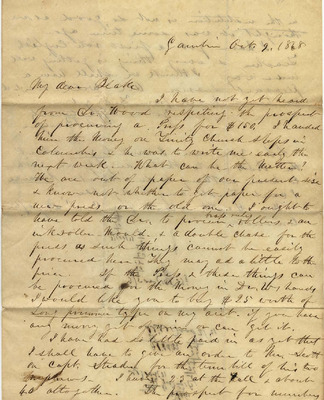 Gambier Oct 2. 1868
My dear Blake
I have not yet heard
from Dr. Wood respecting the prospect
of procuring a Press for $150. I handed
him the money on Trinity Church steps in
Columbus & he was to write me early the
next week. What can be the matter?
We are out of paper of our present size
& know not whether to get paper for a
new press or the old one. I ought to
have told the Dr. to procure rollers & an
ink roller mould, & a double chase for the
press as such things cannot be easily
procured here. They may add a little to the
price. If the Press & these things can
be procured & the money in Dr. W's hands
I would like you to buy $25 worth of
Long primer type on my acct. if you have
any money yet or can get it.
I have had so little paid in as yet that
I shall have to give an order to
on Capt. for the turn bill of his two
nephews. I have 25 at the Hall & about
40 altogether. The prospect for numbers